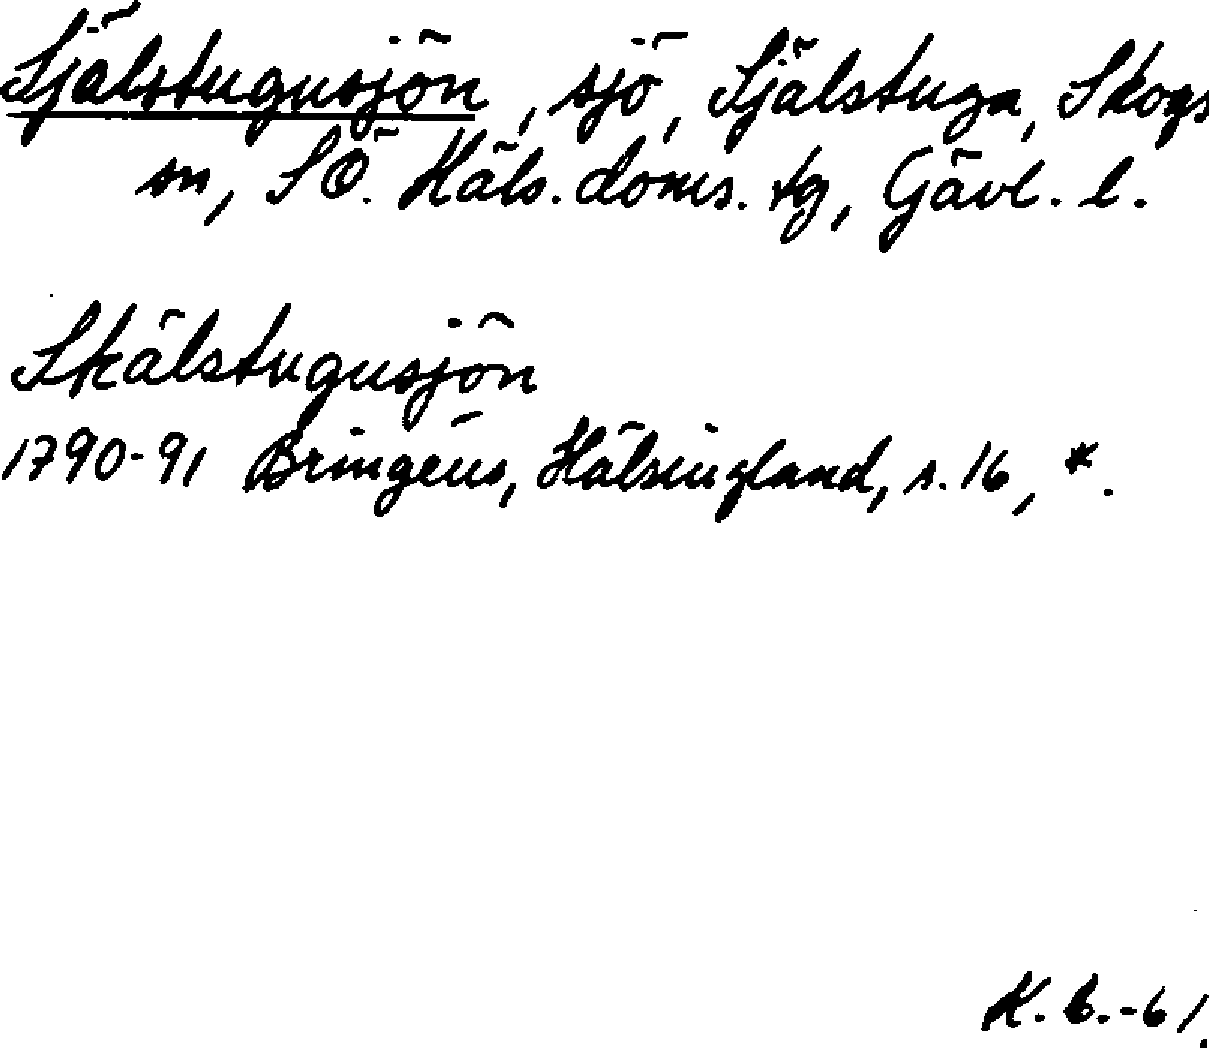 Själstugusjön, sjö, Själstuga, Skogs
sn, SÖ. Häls. doms. tg, Gävl. l.
Skälstugusjön
1790-91 Bringéus, Hälsingland, s. 16, *.
K. C. -61.